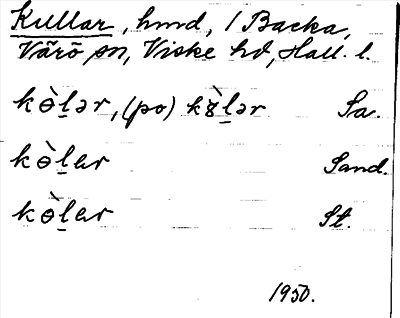 Kullar, hmd, / Backa,
Värö sn, Viske hd, Hall. l.
kɵ̀l̲ər, (po) kɣ̀l̲ər Sa.
kɵ̀l̲ar Sand.
kɵ̀l̲ar St.
1950.